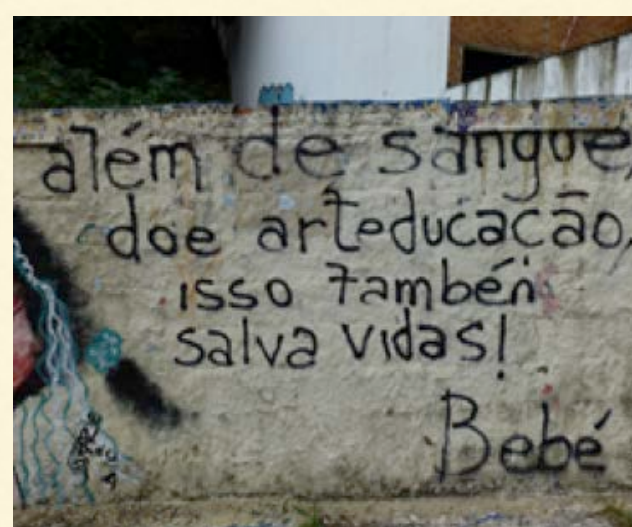 além de sangue,
doe arteducação,
isso também
salva vidas!
Bebé